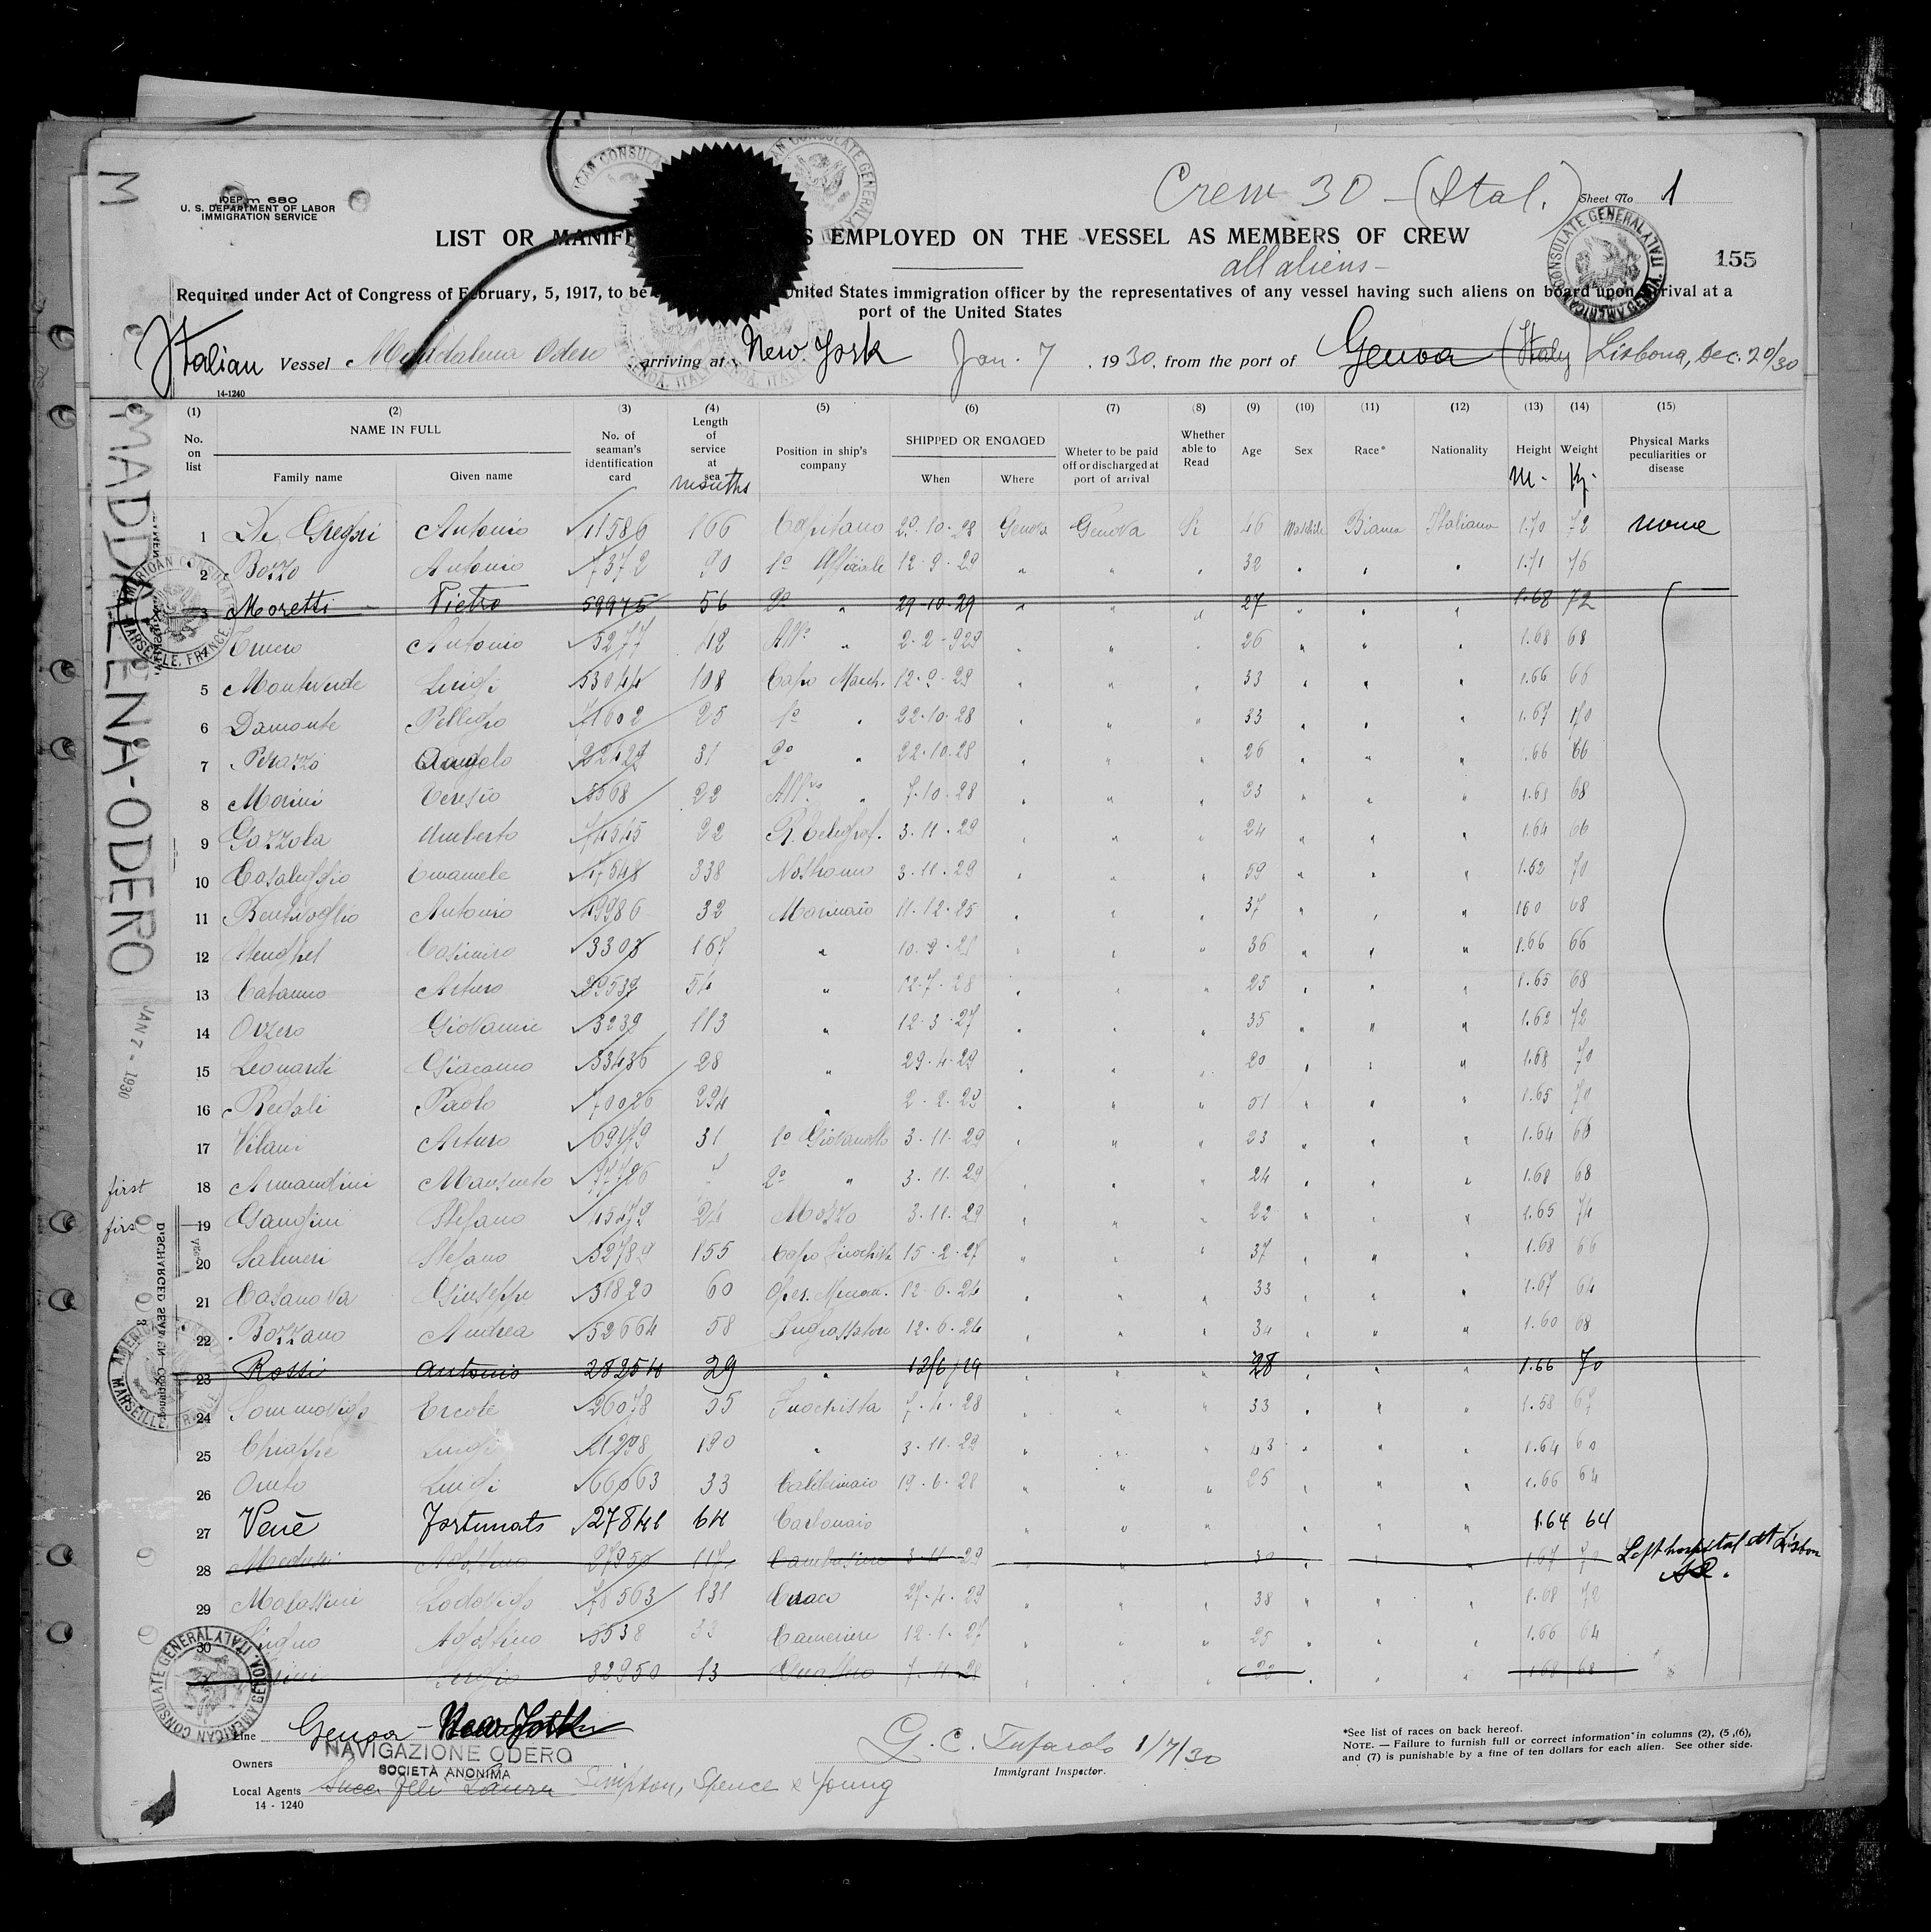 Crew 30 - (Ital.)
Sheet No 1
Form 680
U. S. DEPARTMENT OF LABOR
IMMIGRATION SERVICE
LIST OR EMPLOYED ON THE VESSEL AS MEMBERS OF CREW
all aliens -
155
Required under Act of Congress of February, 5, 1917, to be United States immigration officer by the representatives of any vessel having such aliens on board upon arrival at a
port of the United States
Italian Vessel Maddalena Odero arriving at New York Jan. 7 1930, from the port of Genoa (Italy) Lisbona, Dec. 20/30
14-1240
(1) (2) (3) (4) (5) (6) (7) (8) (9) (10) (11) (12) (13) (14) (15)
No. on list
NAME IN FULL
Family name
Given name
No. of seaman's identification card
Length of service at sea months
Position in ship's company
SHIPPED OR ENGAGED
When
Where
Wheter to be paid off or discharged at port of arrival
Whether able to Read
Age
Sex
Race*
Nationality
Height m.
Weight Kg.
Physical Marks peculiarities or disease
1 De Gregori Antonio 11586 166 Capitano 20.10.28 Genova Genova Si 46 Maschile Bianca Italiana 1.70 72 none
2 Bozzo Antonio 7372 90 1º Officiale 12.9.29 " " " 32 " " " 1.71 76
3 Moretti Pietro 59975 56 2º " 29-10-29 " " " 27 " " " 1.68 72
Antonio 5277 All. " 2-2-929 " " " 26 " " " 1.68 68
5 Monteverde Luigi 53044 108 Capo Macch. 12.9.29 " " " 33 " " " 1.66 66
6 Damonte Pellegro 71602 25 1º " 22.10.28 " " " 33 " " " 1.67 70
7 Perazzo Angelo 31 2º " 22.10.28 " " " 26 " " " 1.66 66
8 Morini Teresio 8568 22 " 7.10.28 " " " 23 " " " 68
9 Gazzola Umberto 74545 22 R. Telegraf. 3.11.29 " " " 24 " " " 1.64 66
10 Casaleggio Emanuele 17548 338 Nostromo 3.11.29 " " " 59 " " " 1.62 70
11 Bentivoglio Antonio 49986 32 Marinaio 11.12.25 " " " 37 " " " 160 68
12 Stenghel Casimiro 167 " " " " 36 " " " 1.66 66
13 Catanno Arturo 29539 54 " 12.7.28 " " " 25 " " " 1.65 68
14 Orzero Giovanni 3239 113 " 12.3.27 " " " 35 " " " 1.62 72
15 Leonardi Giacomo 33436 28 " 29.4.29 " " " 20 " " " 1.68 70
16 Paolo 70026 294 " 2.2.29 " " " 51 " " " 1.65 70
17 Vilani Arturo 69179 31 1º Giovanotto 3.11.29 " " " 23 " " " 1.64 66
first 18 Armandini Mansueto 77726 7 2º " 3.11.29 " " " 24 " " " 1.68 68
first 19 Gandini Stefano 24 Mozzo 3.11.29 " " " 22 " " " 1.65 74
20 Salmeri Stefano 32789 155 Capo Fuochista 15.2.27 " " " 37 " " " 1.68 66
21 Casanova Giuseppe 31820 60 Oper. Meccan. 12.6.24 " " " 33 " " " 1.67 64
22 Bozzano Andrea 52664 58 Ingrassatore 12.6.24 " " " 34 " " " 1.60 68
23 Rossi Antonio 28254 29 " " " " 28 " " " 1.66 70
24 Sommovigo Ercole 26078 55 Fuochista 7.4.28 " " " 33 " " " 1.58 67
25 Chiappe Luigi 190 " 3.11.29 " " " 43 " " " 1.64 60
26 Oneto Luigi 66063 33 Caldrinaio 19.6.28 " " " 25 " " " 1.66 64
27 Venè Fortunato 27841 64 Carbonaio " " " " " " 1.64 64
28 Agostino 27950 117 Cambusiere 3-11-29 30 1.67 70 Left hospital at Lisbon
29 Malassini Lodovigo 78563 131 Cuoco 27.4.29 " " " 38 " " " 1.68 72
30 Agostino 8538 33 Cameriere 12.1.27 " " " 25 " " " 1.66 64
32950 13 7.11.28 " " " " " " 1.68 68
Line Genoa - New York
Owners NAVIGAZIONE ODERO
SOCIETÀ ANONIMA
Local Agents Succ. Flli Lauro Simpson, Spence & Young
14 - 1240
G. C. Tufarolo 1/7/30
Immigrant Inspector.
*See list of races on back hereof.
NOTE. — Failure to furnish full or correct information in columns (2), (5,(6),
and (7) is punishable by a fine of ten dollars for each alien. See other side.
M
MADDALENA-ODERO
JAN 7 - 1930
DISCHARGED SEAMEN
AMERICAN CONSULATE GENERAL
GENOA, ITALY
AMERICAN CONSULATE
MARSEILLE, FRANCE